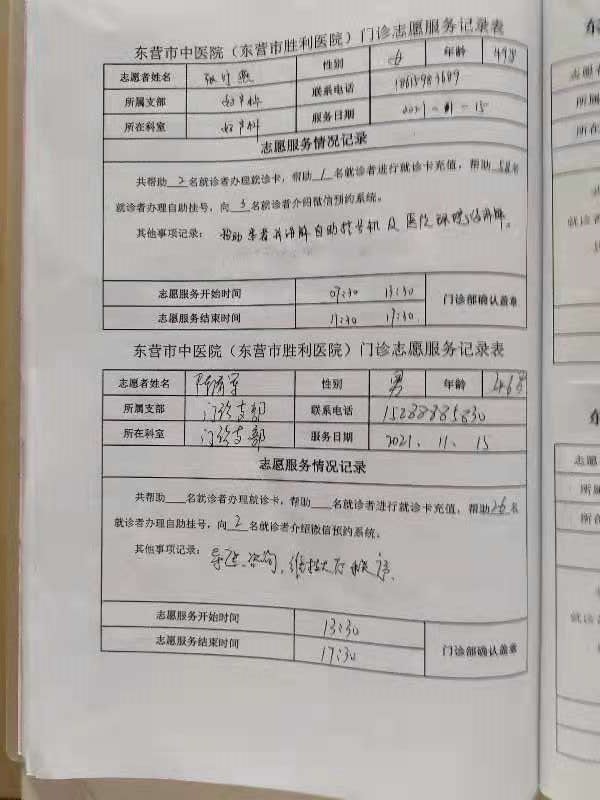 东营市中医院（东营市胜利医院）门诊志愿服务记录表
志愿者姓名 性别 女 年龄 49岁
所属支部 妇产科 联系电话
所在科室 妇产科 服务日期 2021-11-15
志愿服务情况记录
共帮助 2 名就诊者办理就诊卡，帮助 1 名就诊者进行就诊卡充值，帮助 58 名
就诊者办理自助挂号，向 3 名就诊者介绍微信预约系统。
其他事项记录： 帮助患者并讲解自助挂号机及医院环境
志愿服务开始时间 07:30 13:30 门诊部确认盖章
志愿服务结束时间 11:30 17:30
东营市中医院（东营市胜利医院）门诊志愿服务记录表
志愿者姓名 性别 男 年龄 46岁
所属支部 门诊支部 联系电话 15288885830
所在科室 门诊支部 服务日期 2021. 11. 15
志愿服务情况记录
共帮助 名就诊者办理就诊卡，帮助 名就诊者进行就诊卡充值，帮助 26 名
就诊者办理自助挂号，向 2 名就诊者介绍微信预约系统。
其他事项记录： 导医、咨询，维持大厅秩序。
志愿服务开始时间 13:30 门诊部确认盖章
志愿服务结束时间 17:30